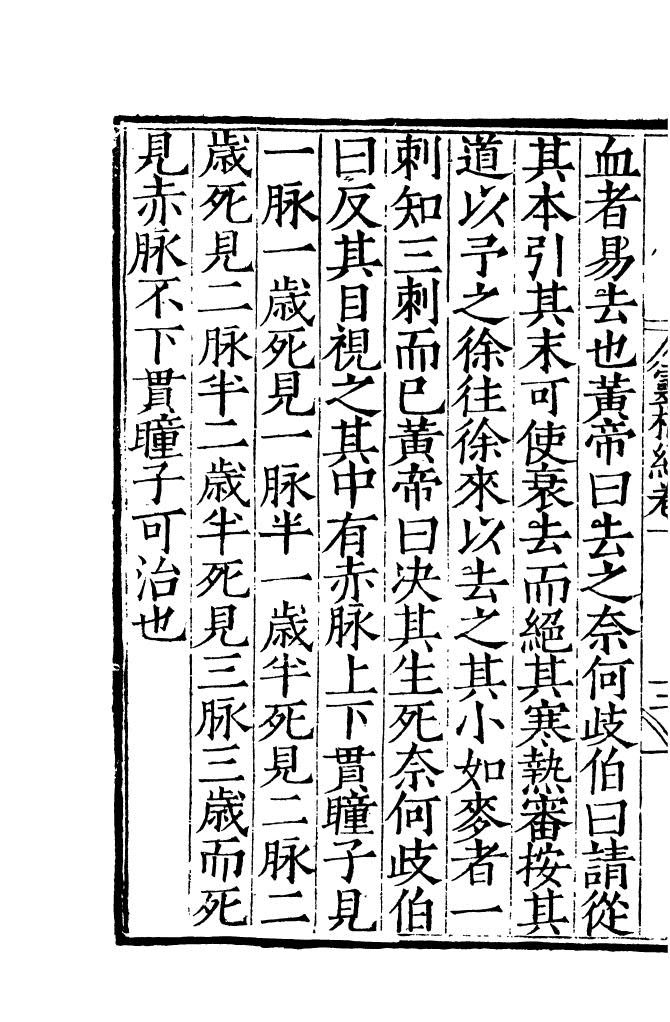 血者易去也黃帝曰去之奈何歧伯曰請從
其本引其末可使衰去而絕其寒熱審按其
道以予之徐往徐來以去之其小如麥者一
刺知三刺而已黃帝曰决其生死奈何歧伯
曰反其目視之其中有赤脉上下貫瞳子見
一脉一歳死見一脉半一歳半死見二脉二
歳死見二脉半二歳半死見三脉三歳而死
見赤脉不下貫瞳子可治也